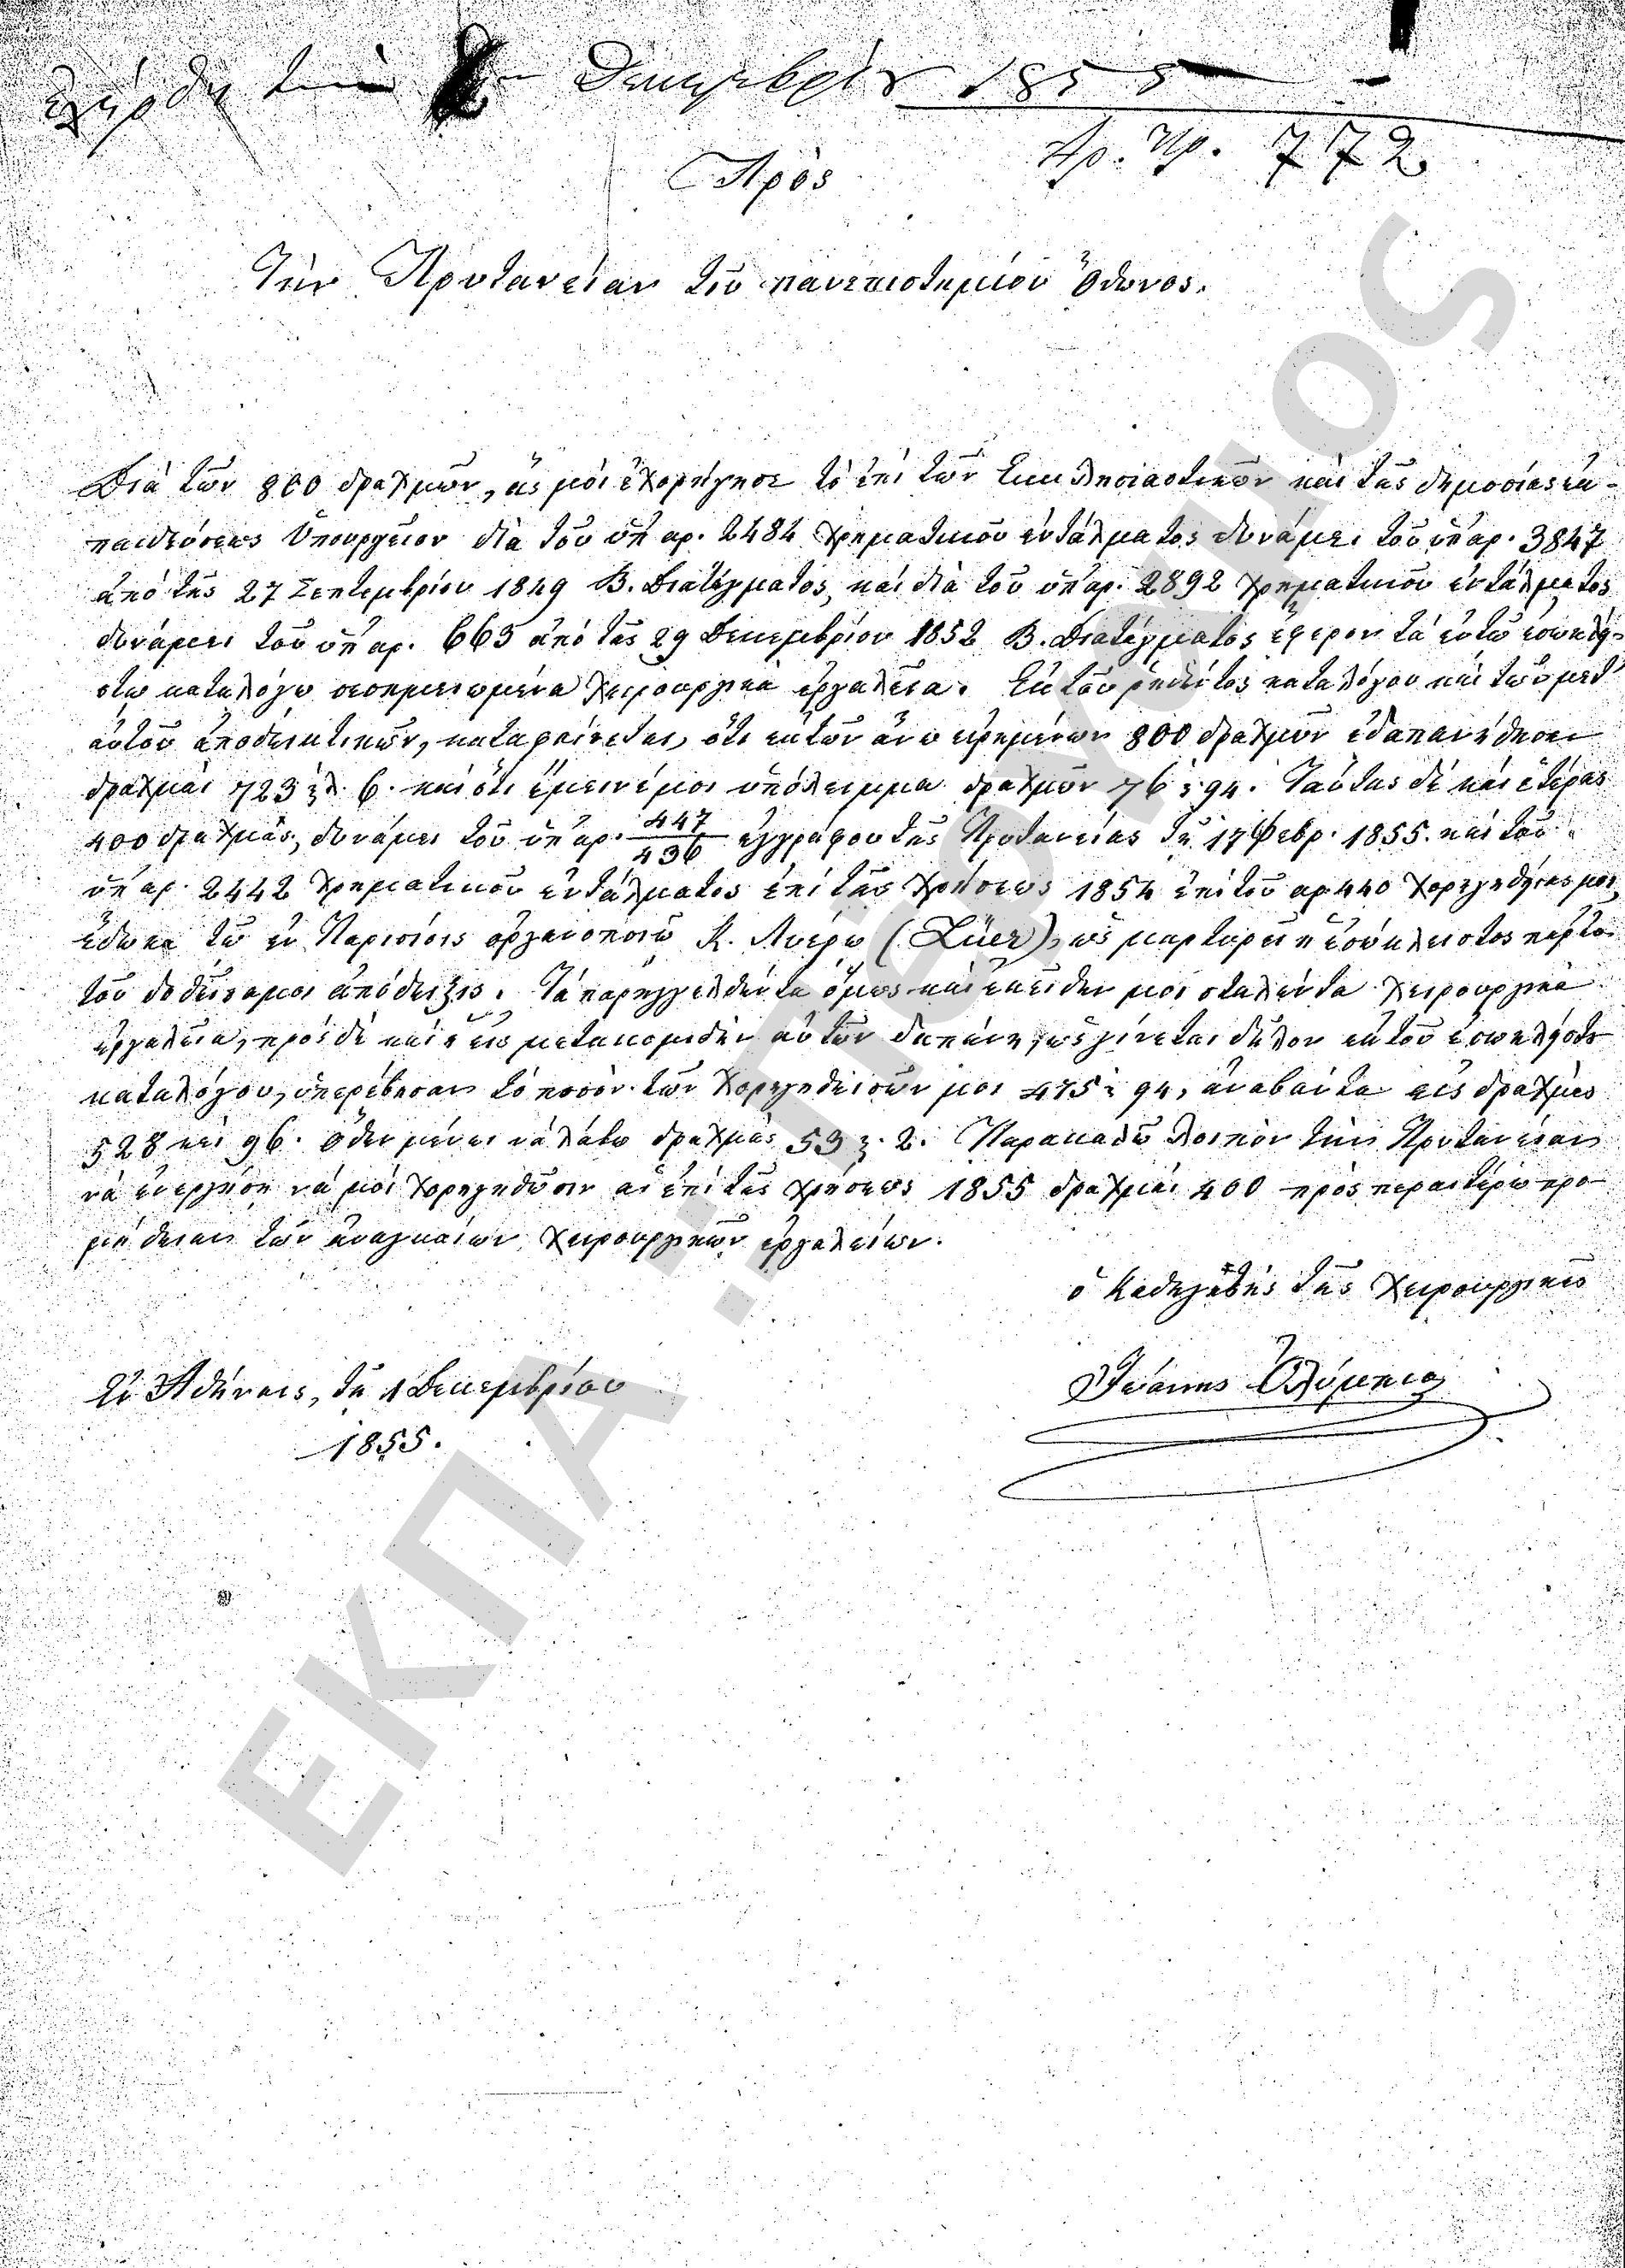 ἐλήφθη τὴν Δεκεμβρίου 1855
Ἀρ. πρ. 772
Πρὸς
Τὴν Πρυτανείαν τοῦ πανεπιστημίου Ὄθωνος.
Διὰ τῶν 800 δραχμῶν, ἃς μοὶ ἐχορήγησε τὸ ἐπὶ τῶν Ἐκκλησιαστικῶν καὶ τῆς δημοσίας ἐκ-
παιδεύσεως Ὑπουργεῖον διὰ τοῦ ὑπ' αρ. 2484 χρηματικοῦ ἐντάλματος δυνάμει τοῦ ὑπ' αρ. 3847
ἀπὸ τῆς 27 Σεπτεμβρίου 1849 Β. Διατάγματος, καὶ διὰ τοῦ ὑπ' αρ. 2892 χρηματικοῦ ἐντάλματος
δυνάμει τοῦ ὑπ' αρ. 665 ἀπὸ τῆς 29 Δεκεμβρίου 1852 Β. Διατάγματος ἔφερον τὰ ἐν τῷ ἐσωκλεί-
στῳ καταλόγῳ σεσημειωμένα χειρουργικὰ ἐργαλεῖα. Ἐκ τοῦ ῥηθέντος καταλόγου καὶ τῶν μετ'
αὐτοῦ ἀποδεικτικῶν, καταφαίνεται, ὅτι ἐκ τῶν ἄνω εἰρημένων 800 δραχμῶν ἐδαπανήθησαν
δραχμαὶ 723 λ. 6. καὶ ὅτι ἔμεινέ μοι ὑπόλειμμα δραχμῶν 76 : 94. Ταύτας δὲ καὶ ἑτέρας
400 δραχμάς, δυνάμει τοῦ ὑπ' αρ. 447/436 ἐγγράφου τῆς Πρυτανείας τῇ 17 Φεβρ. 1855. καὶ τοῦ
ὑπ' αρ. 2442 χρηματικοῦ ἐντάλματος ἐπὶ τῆς χρήσεως 1854 ἐπὶ τοῦ αρ 440 χορηγηθείσας μοι,
ἔδωκα τῷ ἐν Παρισίοις ὀργανοποιῷ Κ. Λυέρῳ (Lüer), ὡς μαρτυρεῖ ἡ ἐσώκλειστος παρ' αὐ-
τοῦ δοθεῖσα μοι ἀπόδειξις. Τὰ παραγγελθέντα ὅμως καὶ ἐκεῖθεν μοι σταλέντα χειρουργικὰ
ἐργαλεῖα, πρὸς δὲ καὶ ἡ εἰς μετακομιδὴν αὐτῶν δαπάνη, ὡς γίνεται δῆλον ἐκ τοῦ ἐσωκλείστου
καταλόγου, ὑπερέβησαν τὸ ποσὸν τῶν χορηγηθεισῶν μοι 475 : 94, ἀναβάντα εἰς δραχμὰς
528 καὶ 96. ὅθεν μένει νὰ λάβω δραχμὰς 53 λ. 2. Παρακαλῶ λοιπὸν τὴν Πρυτανείαν
νὰ ἐνεργήσῃ νὰ μοὶ χορηγηθῶσιν αἱ ἐπὶ τῆς χρήσεως 1855 δραχμαὶ 400 πρὸς περαιτέρω προ-
μήθειαν τῶν ἀναγκαίων χειρουργικῶν ἐργαλείων.
ὁ Καθηγητὴς τῆς χειρουργικῆς
Ἐν Ἀθήναις, τῇ 1 Δεκεμβρίου
1855.
Ἰωάννης Ὀλύμπιος
ΕΚΠΑ